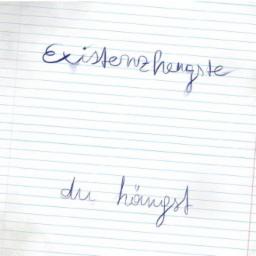 Existenzhengste
du hängst